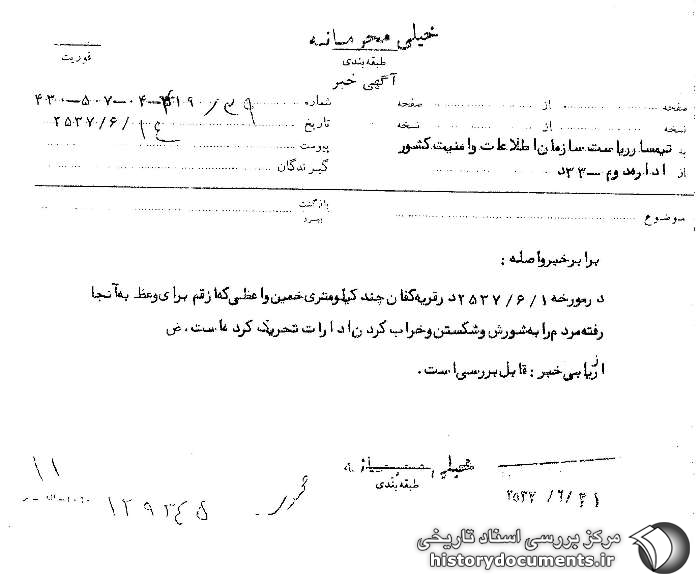 خیلی محرمانه
طبقه‌بندی
فوریت
آگهی خبر
صفحه از صفحه شماره
نسخه از نسخه تاریخ ۲۵۳۷/۶/۱٤
به تیمسار ریاست سازمان اطلاعات و امنیت کشور پیوست
از اداره دوم ـ ۳۳د گیرندگان
موضوع بازگشت
پیرو
برابر خبر واصله :
در مورخه ۲۵۳۷/۶/۱ در قریه کفان چند کیلومتری خمین واعظی که از قم برای وعظ به آنجا
رفته مردم را به شورش و شکستن و خراب کردن ادارات تحریک کرده است. ض
ارزیابی خبر : قابل بررسی است .
خیلی محرمانه
طبقه‌بندی
۱۱
۱۲۹۳٤۵
مرکز بررسی اسناد تاریخی
historydocuments.ir